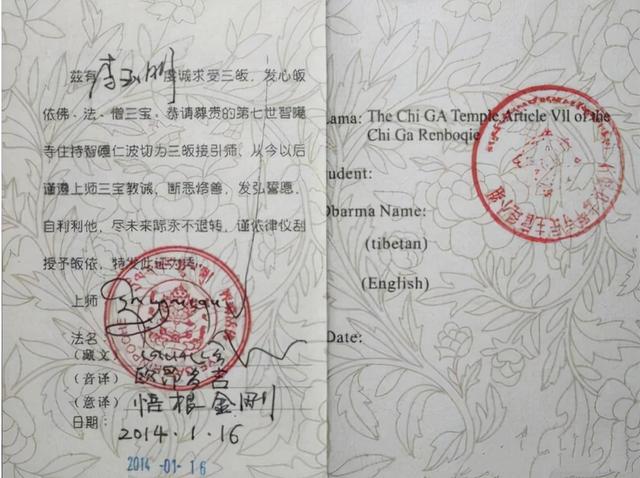 兹有李玉刚虔诚求受三皈，发心皈
依佛、法、僧三宝。恭请尊贵的第七世智噶
寺住持智噶仁波切为三皈接引师，从今以后
谨遵上师三宝教诫，断恶修善，发弘誓愿，
自利利他，尽未来际永不退转，谨依律仪刮
授予皈依，特发此证为凭
上师
法名
（藏文）
（音译）
（意译）悟根金刚
日期：2014.1.16
2014-01-16
Lama: The Chi GA Temple Article Vll of the
Chi Ga Renboqie
tudent:
Dbarma Name:
(tibetan)
(English)
Date: